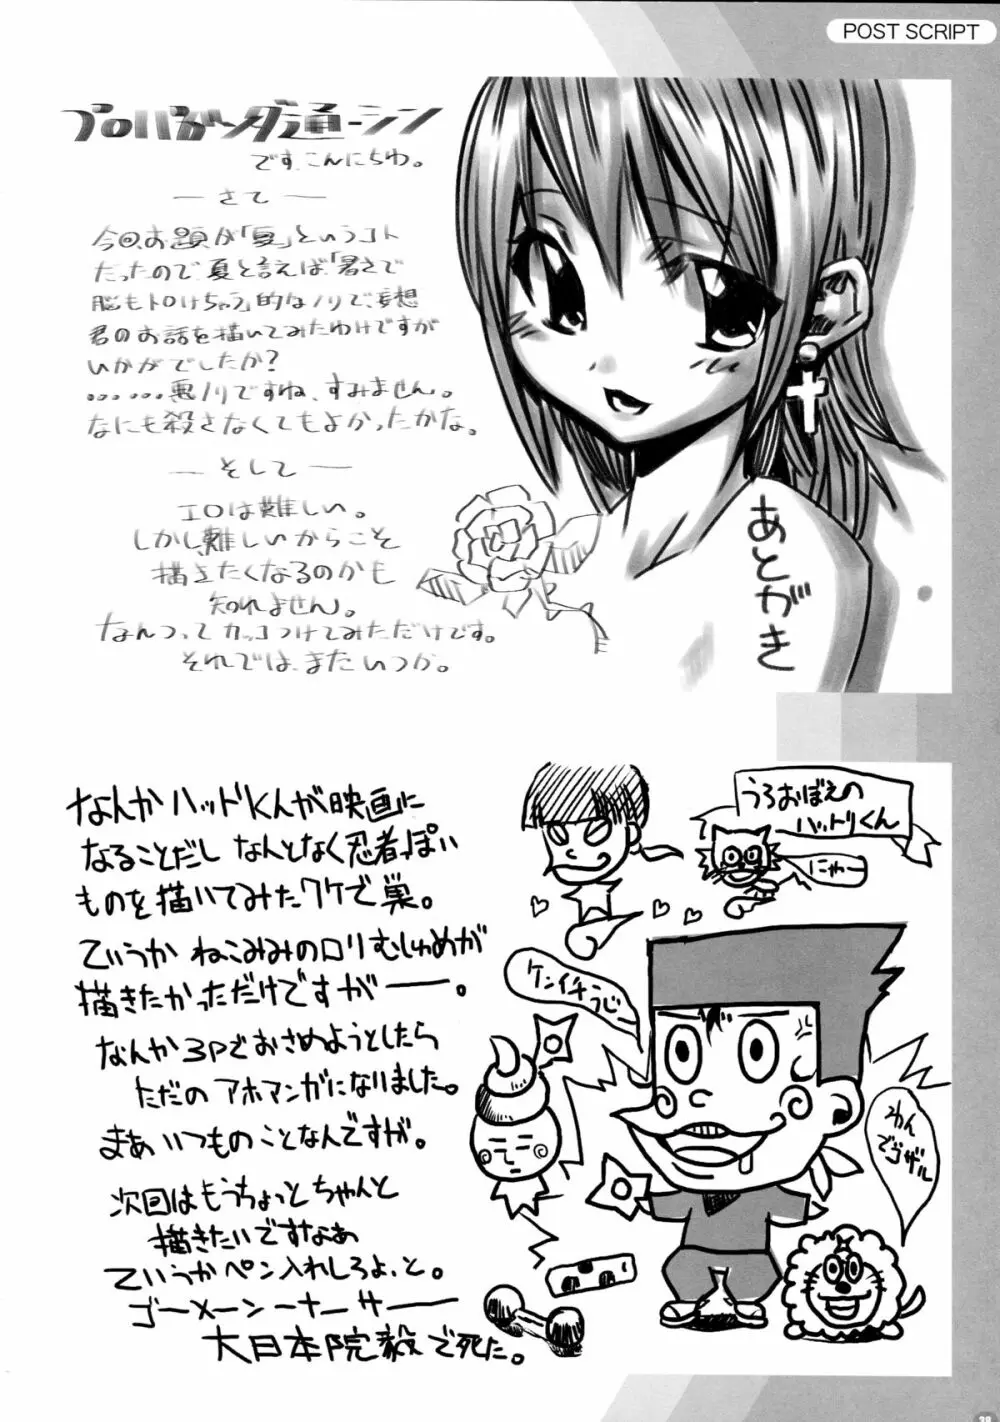 POST SCRIPT
プロパガンダ通ーシン
です、こんにちわ。
—さて—
今回、お題が「夏」というコト
だったので、夏と言えば「暑さで
脳もトロけちゃう」的なノリで、妄想
君のお話を描いてみたわけですが
いかがでしたか？
……悪ノリですね、すみません。
なにも殺さなくてもよかったかな。
—そして—
エロは難しい。
しかし、難しいからこそ
描きたくなるのかも
知れません。
なんつってカッコつけてみただけです。
それでは、またいつか。
あとがき
なんかハットリくんが映画に
なることだし なんとなく忍者ぽい
ものを描いてみたワケで巣。
ていうか ねこみみのロリむしゅめが
描きたかっただけですがーー。
なんか3Pでおさめようとしたら
ただのアホマンガになりました。
まぁいつものことなんですが。
次回はもうちょっとちゃんと
描きたいですなぁ
ていうかペン入れしろよ、と。
ゴーメーンーナーサーー
大日本院毅で死た。
うろおぼえの
ハットリくん
にゃー
ケンイチうじー
わん
でゴザル